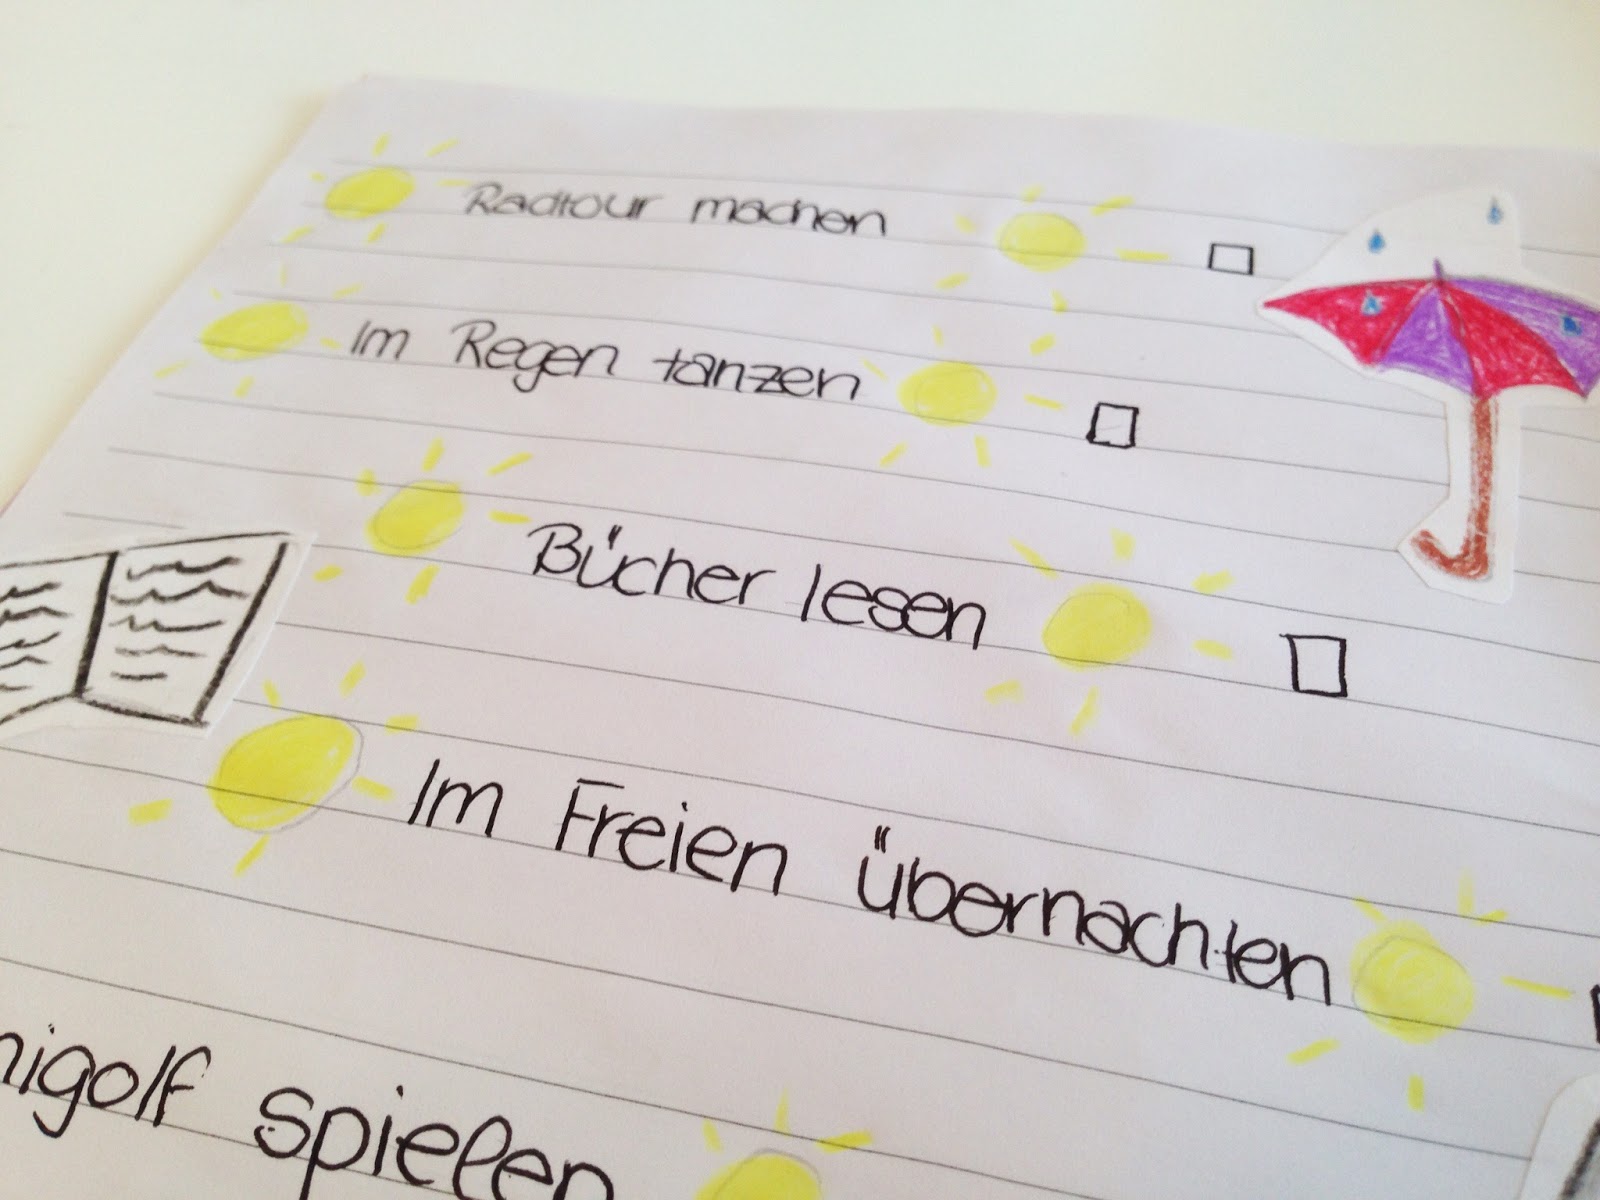 Radtour machen
Im Regen tanzen
Bücher lesen
Im Freien übernachten
nigolf spielen